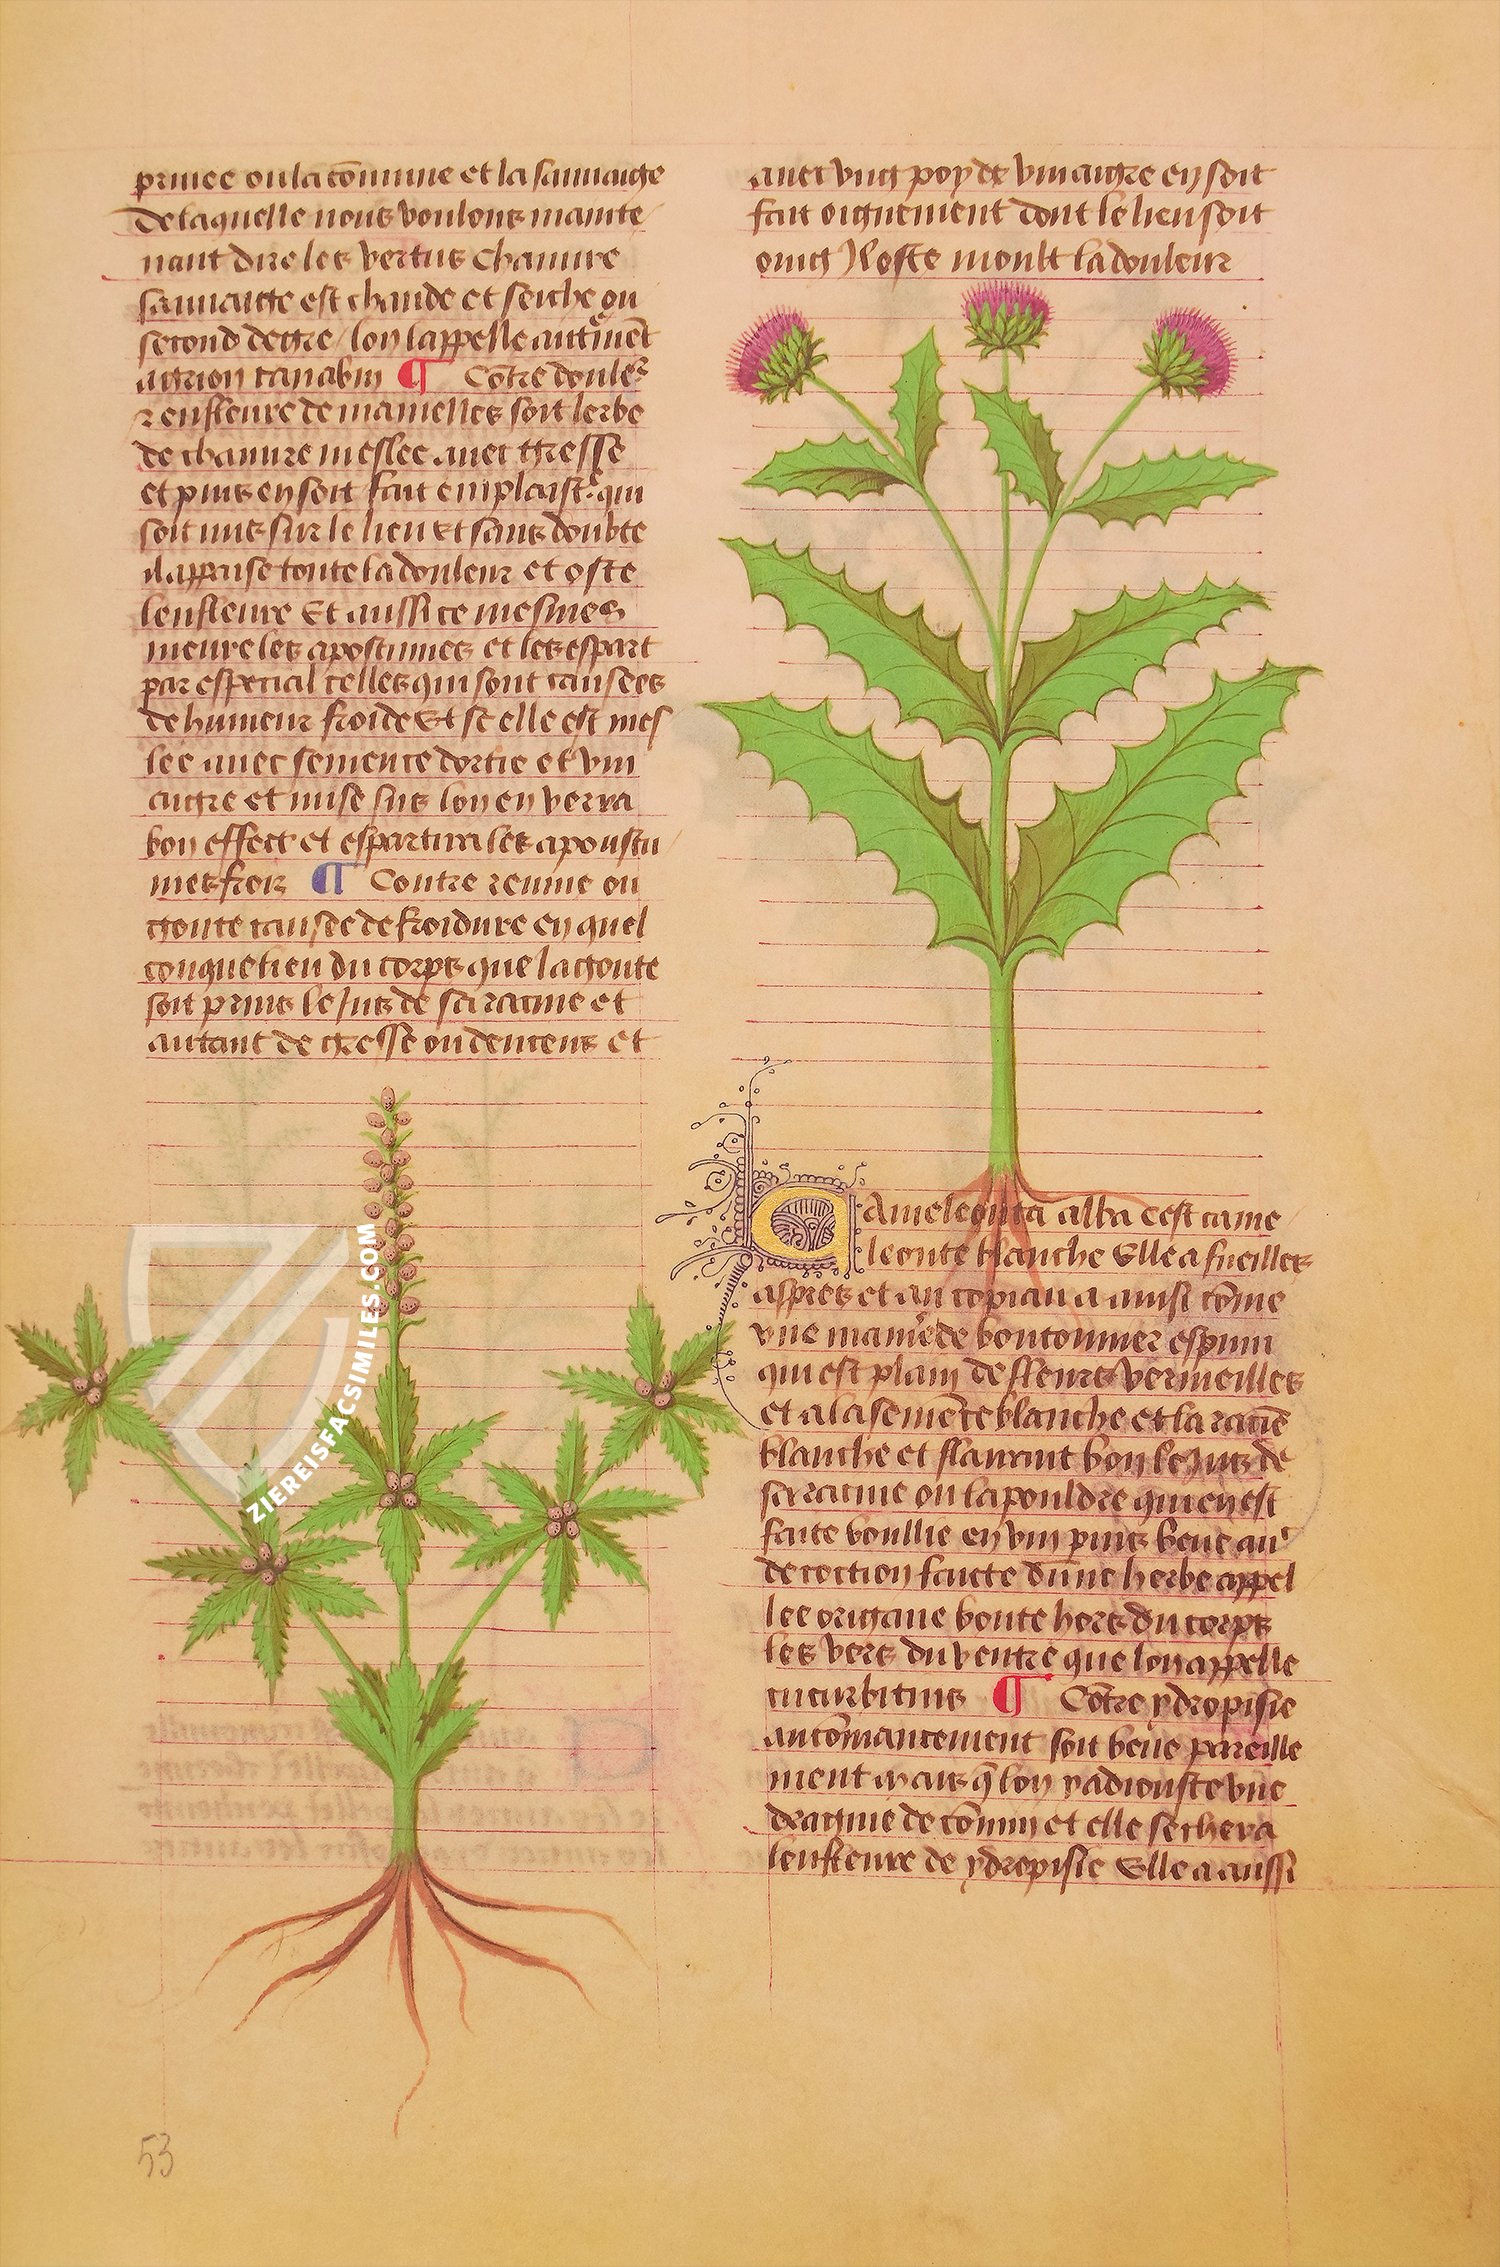 privee ou la cōmune et la sauuaige
de laquelle nous voulons mainte
nant dire les vertus Chanure
sauuaige est chaude et seiche ou
second degre / lon lappelle autremēt
agrion canabin ¶ Cōtre douler
z enfleure de mamelles soit lerbe
de chanure meslee auec gresse
et puis en soit fait emplastr̄ qui
soit mis sur le lieu Et sans doubte
il appaise toute la douleur et oste
lenfleure Et aussi ce mesmes
meure les apostumes et les espart
par especial celles qui sont causees
de humeur froide Et se elle est mes
lee auec semence dortie et vin
aigre et mise sus lon en verra
bon effect et espartira les apoustu
mes frois ¶ Contre reume ou
goute causee de froidure en quel
conque lieu du corps que la goute
soit prins le jus de sa racine et
autant de gresse ou dencens et
auec vng poy de vinaigre en soit
fait oignement dont le lieu soit
oing Il oste moult la douleur
Cameleonta alba cest came
leonte blanche Elle a fueilles
aspres et au copiau a ainsi cōme
vne manie͛ de boutonnier espinu
qui est plain de fleurs vermeilles
et a la semēce blanche et la racīe
blanche et flairant bon le jus de
sa racine ou la pouldre qui en est
faite boullie en vin puis beue au͛
decoction faicte dune herbe appel
lee origane boute hors du corps
les vers du ventre que lon appelle
cucurbitins ¶ Cōtre ydropisie
au cōmancement soit beue pareille
ment mais q̄ lon y adiouste vne
dragme de cōmin et elle sechera
lenfleure de ydropisie Elle a aussi
53
ZIEREISFACSIMILES.COM